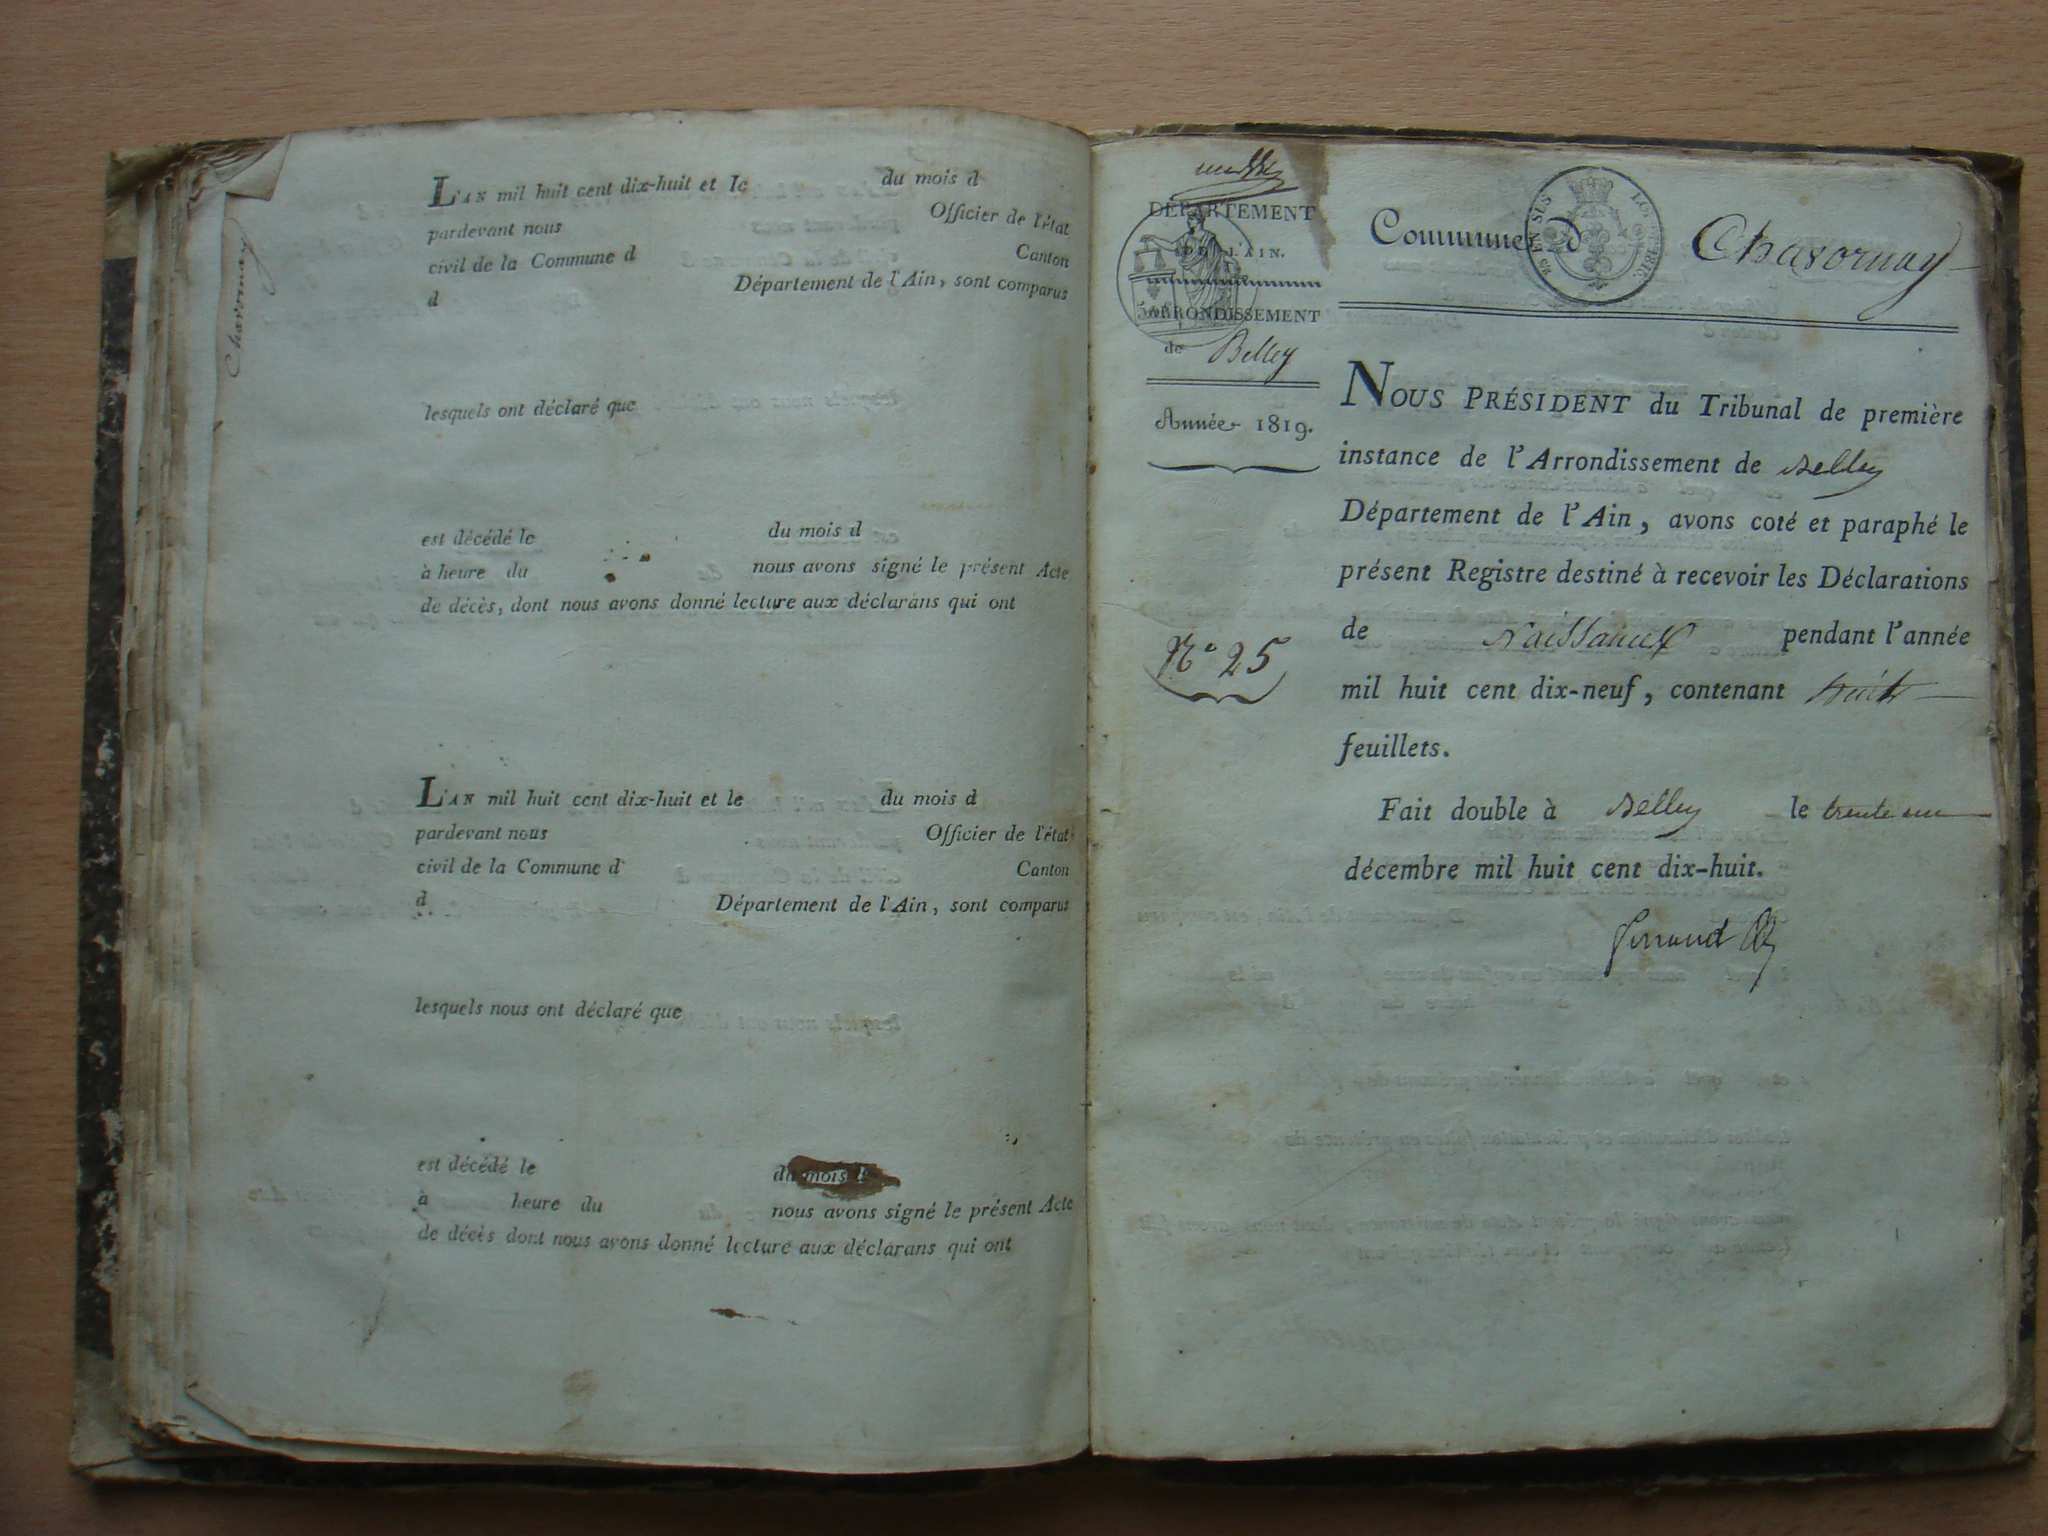 Chavornay
L'AN mil huit cent dix-huit et le du mois d
pardevant nous Officier de l'état
civil de la Commune d Canton
d Département de l'Ain, sont comparus
lesquels ont déclaré que
est décédé le du mois d
à heure du nous avons signé le présent Acte
de décès, dont nous avons donné lecture aux déclarans qui ont
L'AN mil huit cent dix-huit et le du mois d
pardevant nous Officier de l'état
civil de la Commune d Canton
d Département de l'Ain, sont comparus
lesquels nous ont déclaré que
est décédé le du mois d
à heure du nous avons signé le présent Acte
de décès dont nous avons donné lecture aux déclarans qui ont
DÉPARTEMENT
DE L'AIN.
ARRONDISSEMENT
de Belley
Année 1819.
N° 25
Commune d Chavornay
NOUS PRÉSIDENT du Tribunal de première
instance de l'Arrondissement de Belley
Département de l'Ain, avons coté et paraphé le
présent Registre destiné à recevoir les Déclarations
de Naissances pendant l'année
mil huit cent dix-neuf, contenant huit
feuillets.
Fait double à Belley le trente un
décembre mil huit cent dix-huit.